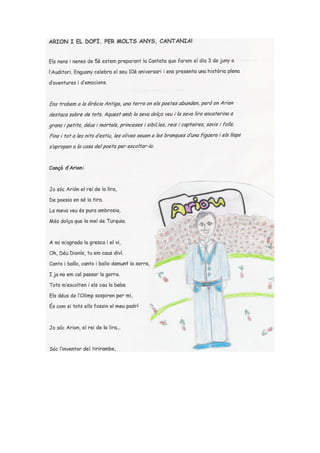 ARION I EL DOFÍ. PER MOLTS ANYS, CANTANIA!
Els nens i nenes de 5è estem preparant la Cantata que farem el dia 3 de juny a
l'Auditori. Enguany celebra el seu 10è aniversari i ens presenta una història plena
d'aventures i d'emocions.
Ens trobem a la Grècia Antiga, una terra on els poetes abunden, però on Arion
destaca sobre de tots. Aquest amb la seva dolça veu i la seva lira encaterina a
grans i petits, déus i mortals, princesses i sibil.les, reis i captaires, savis i folls.
Fins i tot a les nits d'estiu, les olives seuen a les branques d'una figuera i els llops
s'apropen a la casa del poeta per escoltar-lo.
Cançó d'Arion:
Jo sóc Arión el rei de la lira,
De poesia en sé la tira.
La meva veu és pura ambrosia,
Més dolça que la mel de Turquia.
A mi m'agrada la gresca i el vi,
Oh, Déu Dionís, tu em caus diví.
Canto i ballo, canto i ballo damunt la sorra,
I ja no em cal passar la gorra.
Tots m'escolten i els cau la baba
Els déus de l'Olimp sospiren per mi,
És com si tots ells fossin el meu padrí
Jo sóc Arion, el rei de la lira...
Sóc l'inventor del tirirambe,
Arion